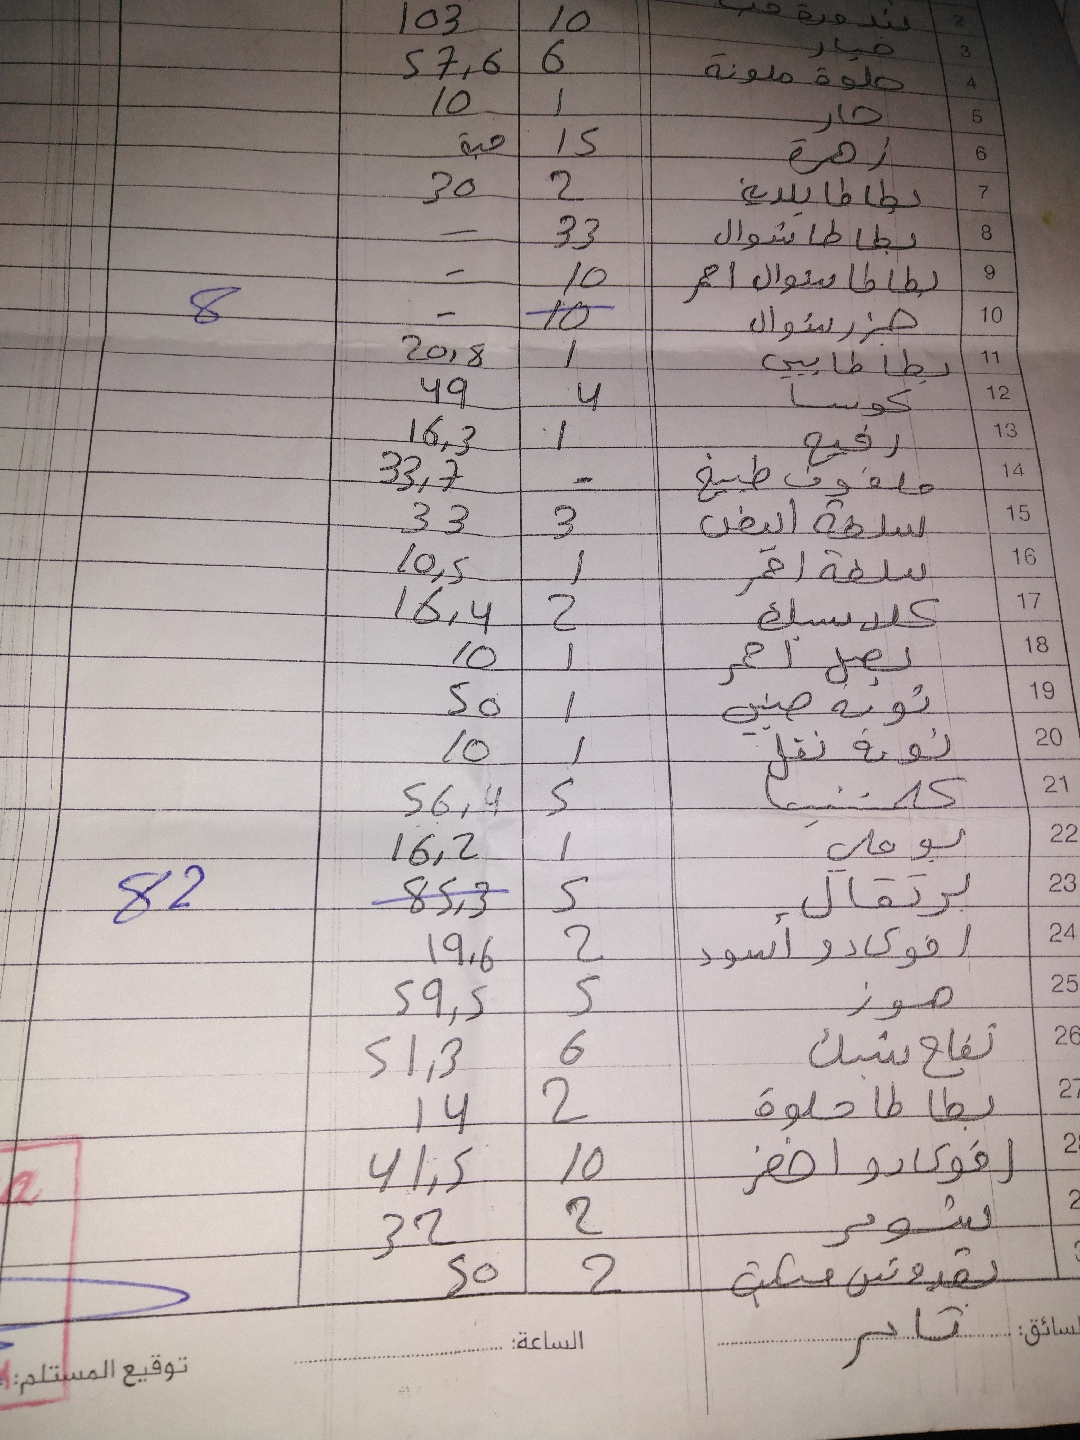 2 بندورة حب 10 103
3 خيار
4 حلوة ملونة 6 57,6
5 حار 1 10
6 زهرة 15 حبة
7 بطاطا بلدية 2 30
8 بطاطا شوال 33 =
9 بطاطا شوال احمر 10 -
10 جزر شوال 10 - 8
11 بطاطا بيبي 1 20,8
12 كوسا 4 49
13 رفيع 1 16,3
14 ملفوف طبيخ - 33,7
15 سلطة ابيض 3 33
16 سلطة احمر 1 10,5
17 كلاسيك 2 16,4
18 بصل احمر 1 10
19 ثومة صيني 1 50
20 ثومة نقل 1 10
21 كلمنتينا 5 56,4
22 بوملي 1 16,2
23 برتقال 5 85,3 82
24 افوكادو أسود 2 19,6
25 موز 5 59,5
26 تفاح شبك 6 51,3
27 بطاطا حلوة 2 14
2 افوكادو اخضر 10 41,5
2 شومر 2 32
بقدونس مكتبة 2 50
السائق: ثامر الساعة:
توقيع المستلم: